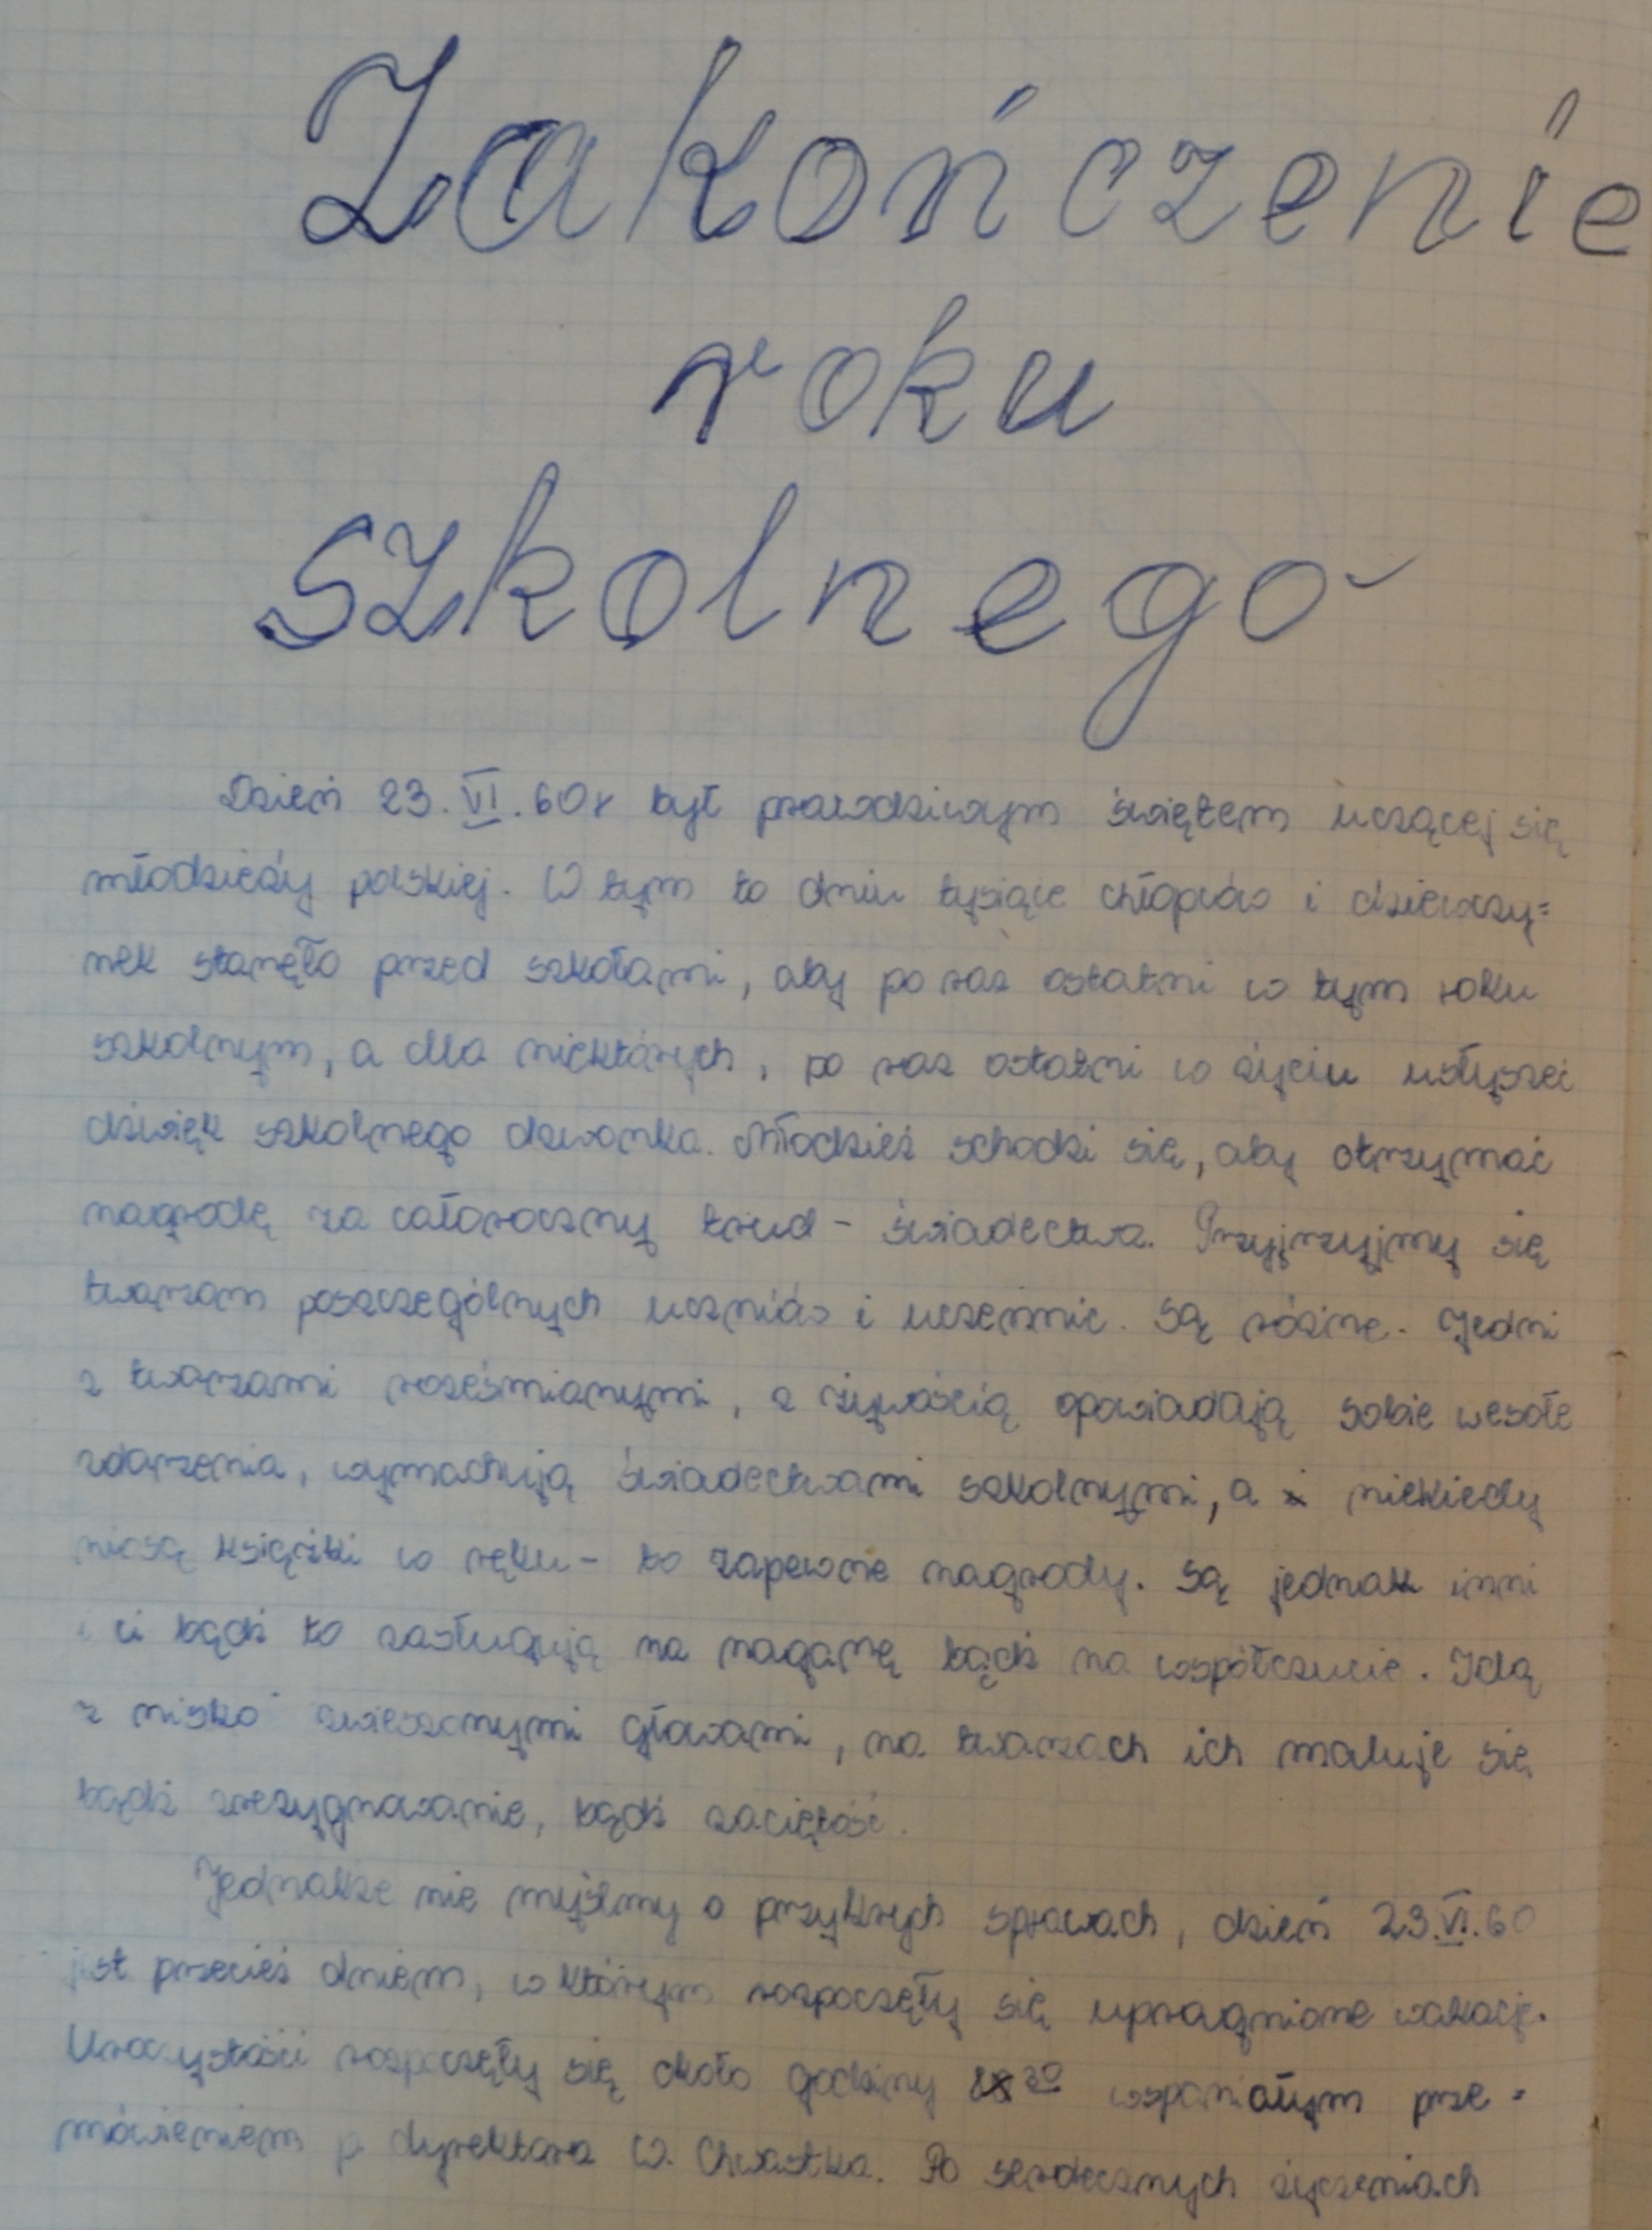 Zakończenie
roku
szkolnego
Dzień 23.VI.60r był prawdziwym świętem uczącej się
młodzieży polskiej. W tym to dniu tysiące chłopców i dziewczy=
nek stanęło przed szkołami, aby po raz ostatni w tym roku
szkolnym, a dla niektórych, po raz ostatni w życiu usłyszeć
dźwięk szkolnego dzwonka. Młodzież schodzi się, aby otrzymać
nagrodę za całoroczny trud - świadectwa. Przyjrzyjmy się
twarzom poszczególnych uczniów i uczennic. Są różne. Jedni
z twarzami roześmianymi, z żywością opowiadają sobie wesołe
zdarzenia, wymachują świadectwami szkolnymi, a niekiedy
niosą książki w ręku - to zapewne nagrody. Są jednak inni
i ci bądź to zasługują na naganę bądź na współczucie. Idą
z nisko zwieszonymi głowami, na twarzach ich maluje się
bądź zrezygnowanie, bądź zaciętość.
Jednakże nie myślmy o przykrych sprawach, dzień 23.VI.60
jest przecież dniem, w którym rozpoczęły się upragnione wakacje.
Uroczystości rozpoczęły się około godziny 30 wspaniałym prze=
mówieniem p dyrektora W. Chwastka. Po serdecznych życzeniach